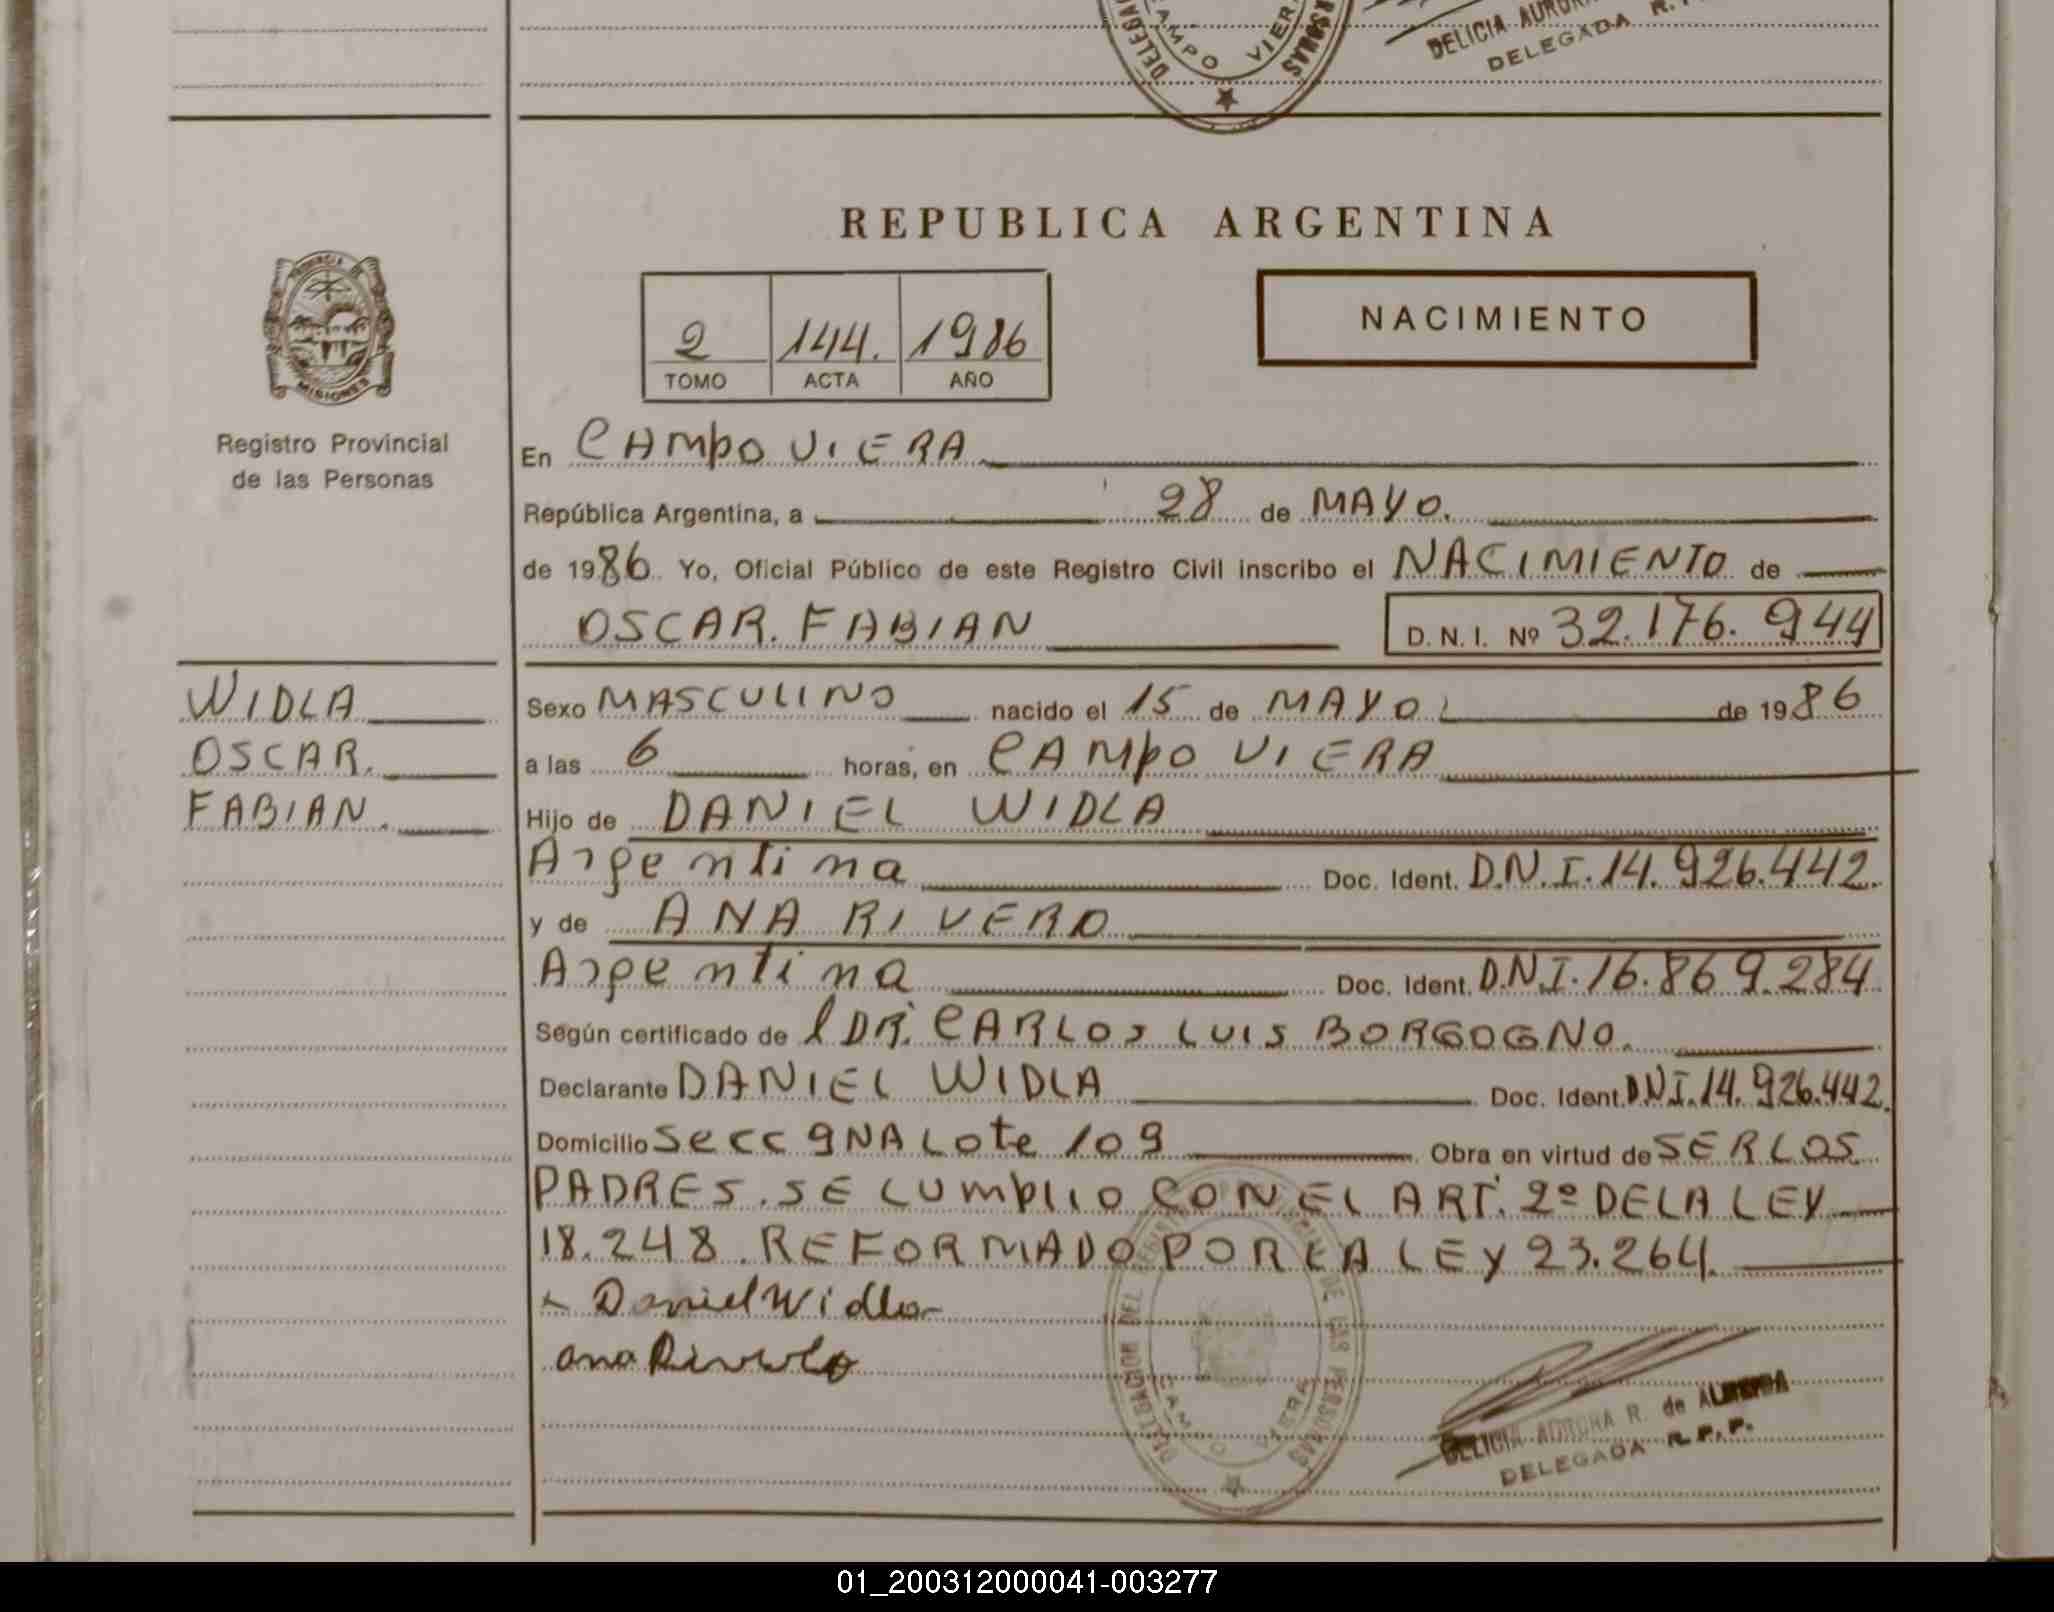 DELEGAC
CAMPO VIER
RSONAS
DELICIA AUROR
DELEGADA R.
REPUBLICA ARGENTINA
PROVINCIA DE
MISIONES
Registro Provincial
de las Personas
2 144. 1986
TOMO ACTA AÑO
NACIMIENTO
En CAMPO VIERA
República Argentina, a 28 de MAYO.
de 1986. Yo, Oficial Público de este Registro Civil inscribo el NACIMIENTO de
OSCAR. FABIAN D. N. I. Nº 32.176.944
WIDLA
OSCAR.
FABIAN.
Sexo MASCULINO nacido el 15 de MAYO de 1986
a las 6 horas, en CAMPO VIERA
Hijo de DANIEL WIDLA
Argentina Doc. Ident. D.N.I.14.926.442.
y de ANA RIVERO
Argentina Doc. Ident. D.N.I.16.869.284
Según certificado de l DR. CARLOS LUIS BORGOGNO.
Declarante DANIEL WIDLA Doc. Ident. D.N.I.14.926.442.
Domicilio Secc 9NA Lote 109 Obra en virtud de SER LOS
PADRES. SE CUMPLIO CON EL ART. 2º DE LA LEY
18.248. REFORMADO POR LA LEY 23.264.
Daniel Widla
ana Rivero
DELEGACION DEL REGISTRO PROVINCIAL DE LAS PERSONAS
CAMPO VIERA
DELICIA AURORA R. de ALMEIDA
DELEGADA R.P.P.
01_200312000041-003277